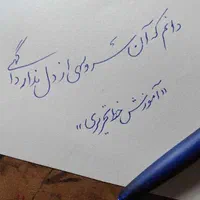 دانم که آن سرو سهی از دل ندارد آگهی
«آموزش خط تحریری»